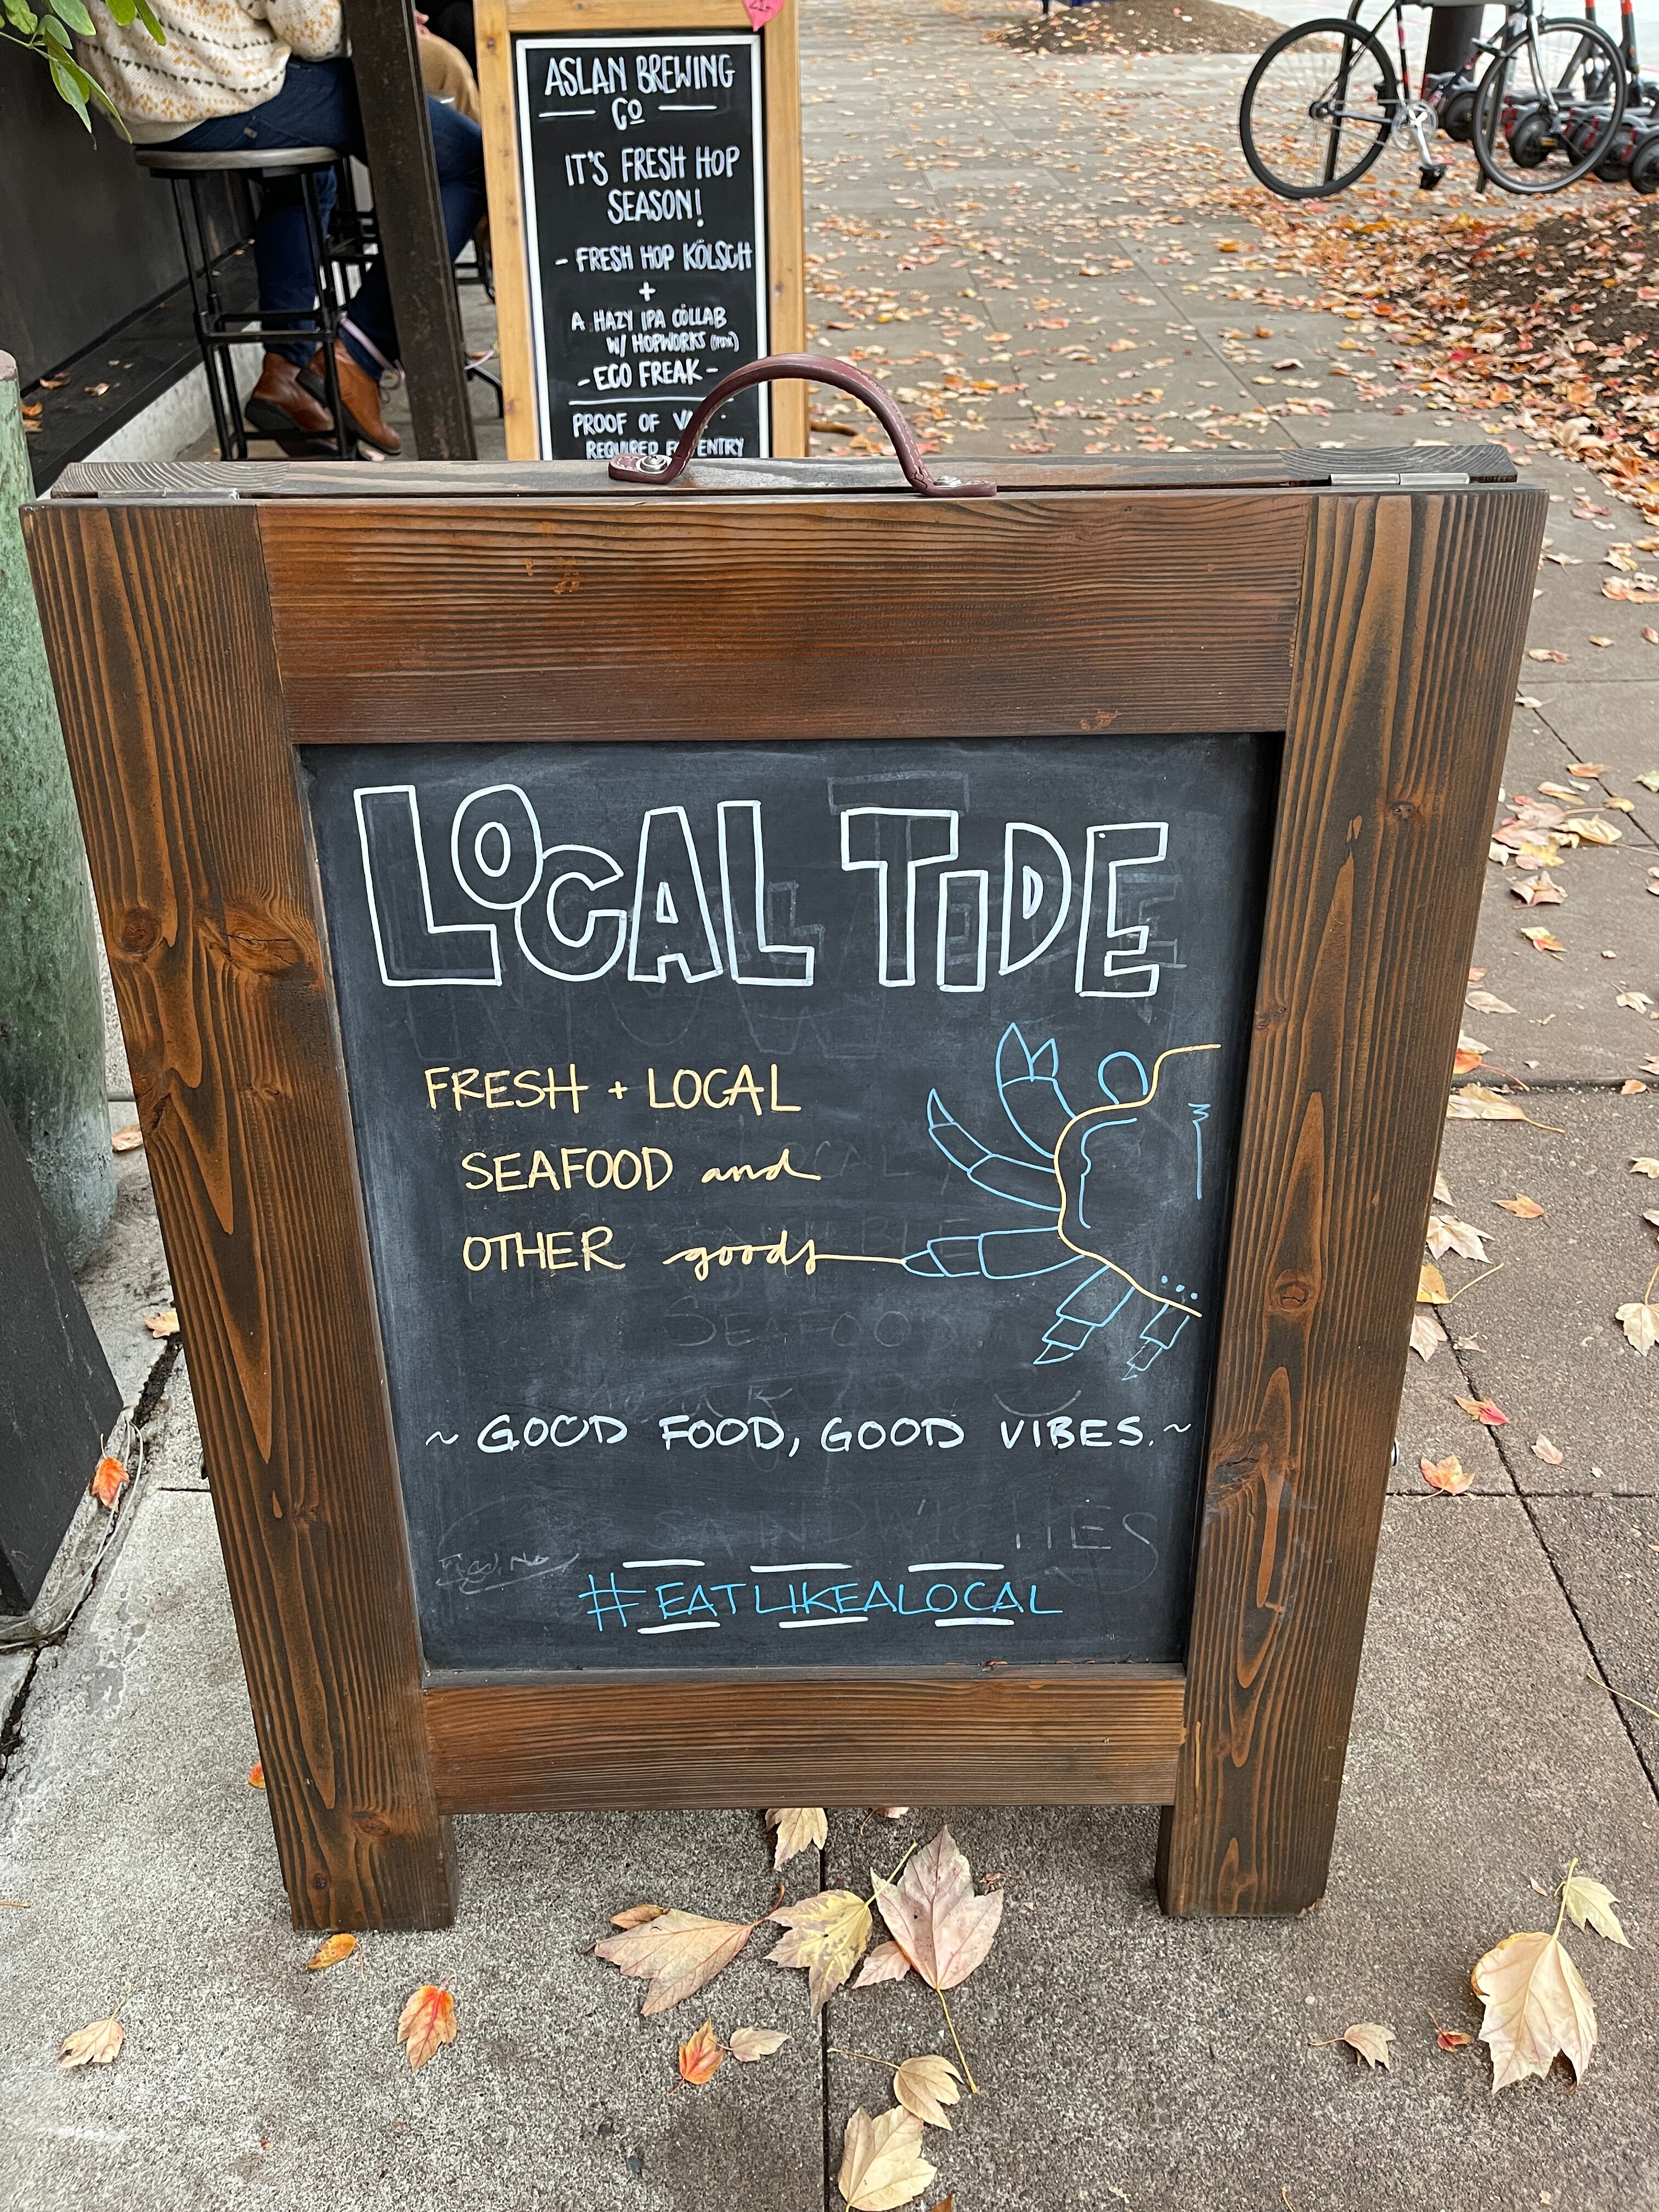 ASLAN BREWING
CO
IT'S FRESH HOP
SEASON!
- FRESH HOP KÖLSCH
+
A HAZY IPA COLLAB
W/ HOPWORKS
- ECO FREAK -
PROOF OF
REQUIRED ENTRY
LOCAL TIDE
FRESH + LOCAL
SEAFOOD and
OTHER goods
~ GOOD FOOD, GOOD VIBES. ~
SANDWICHES
SEAFOOD
#EATLIKEALOCAL